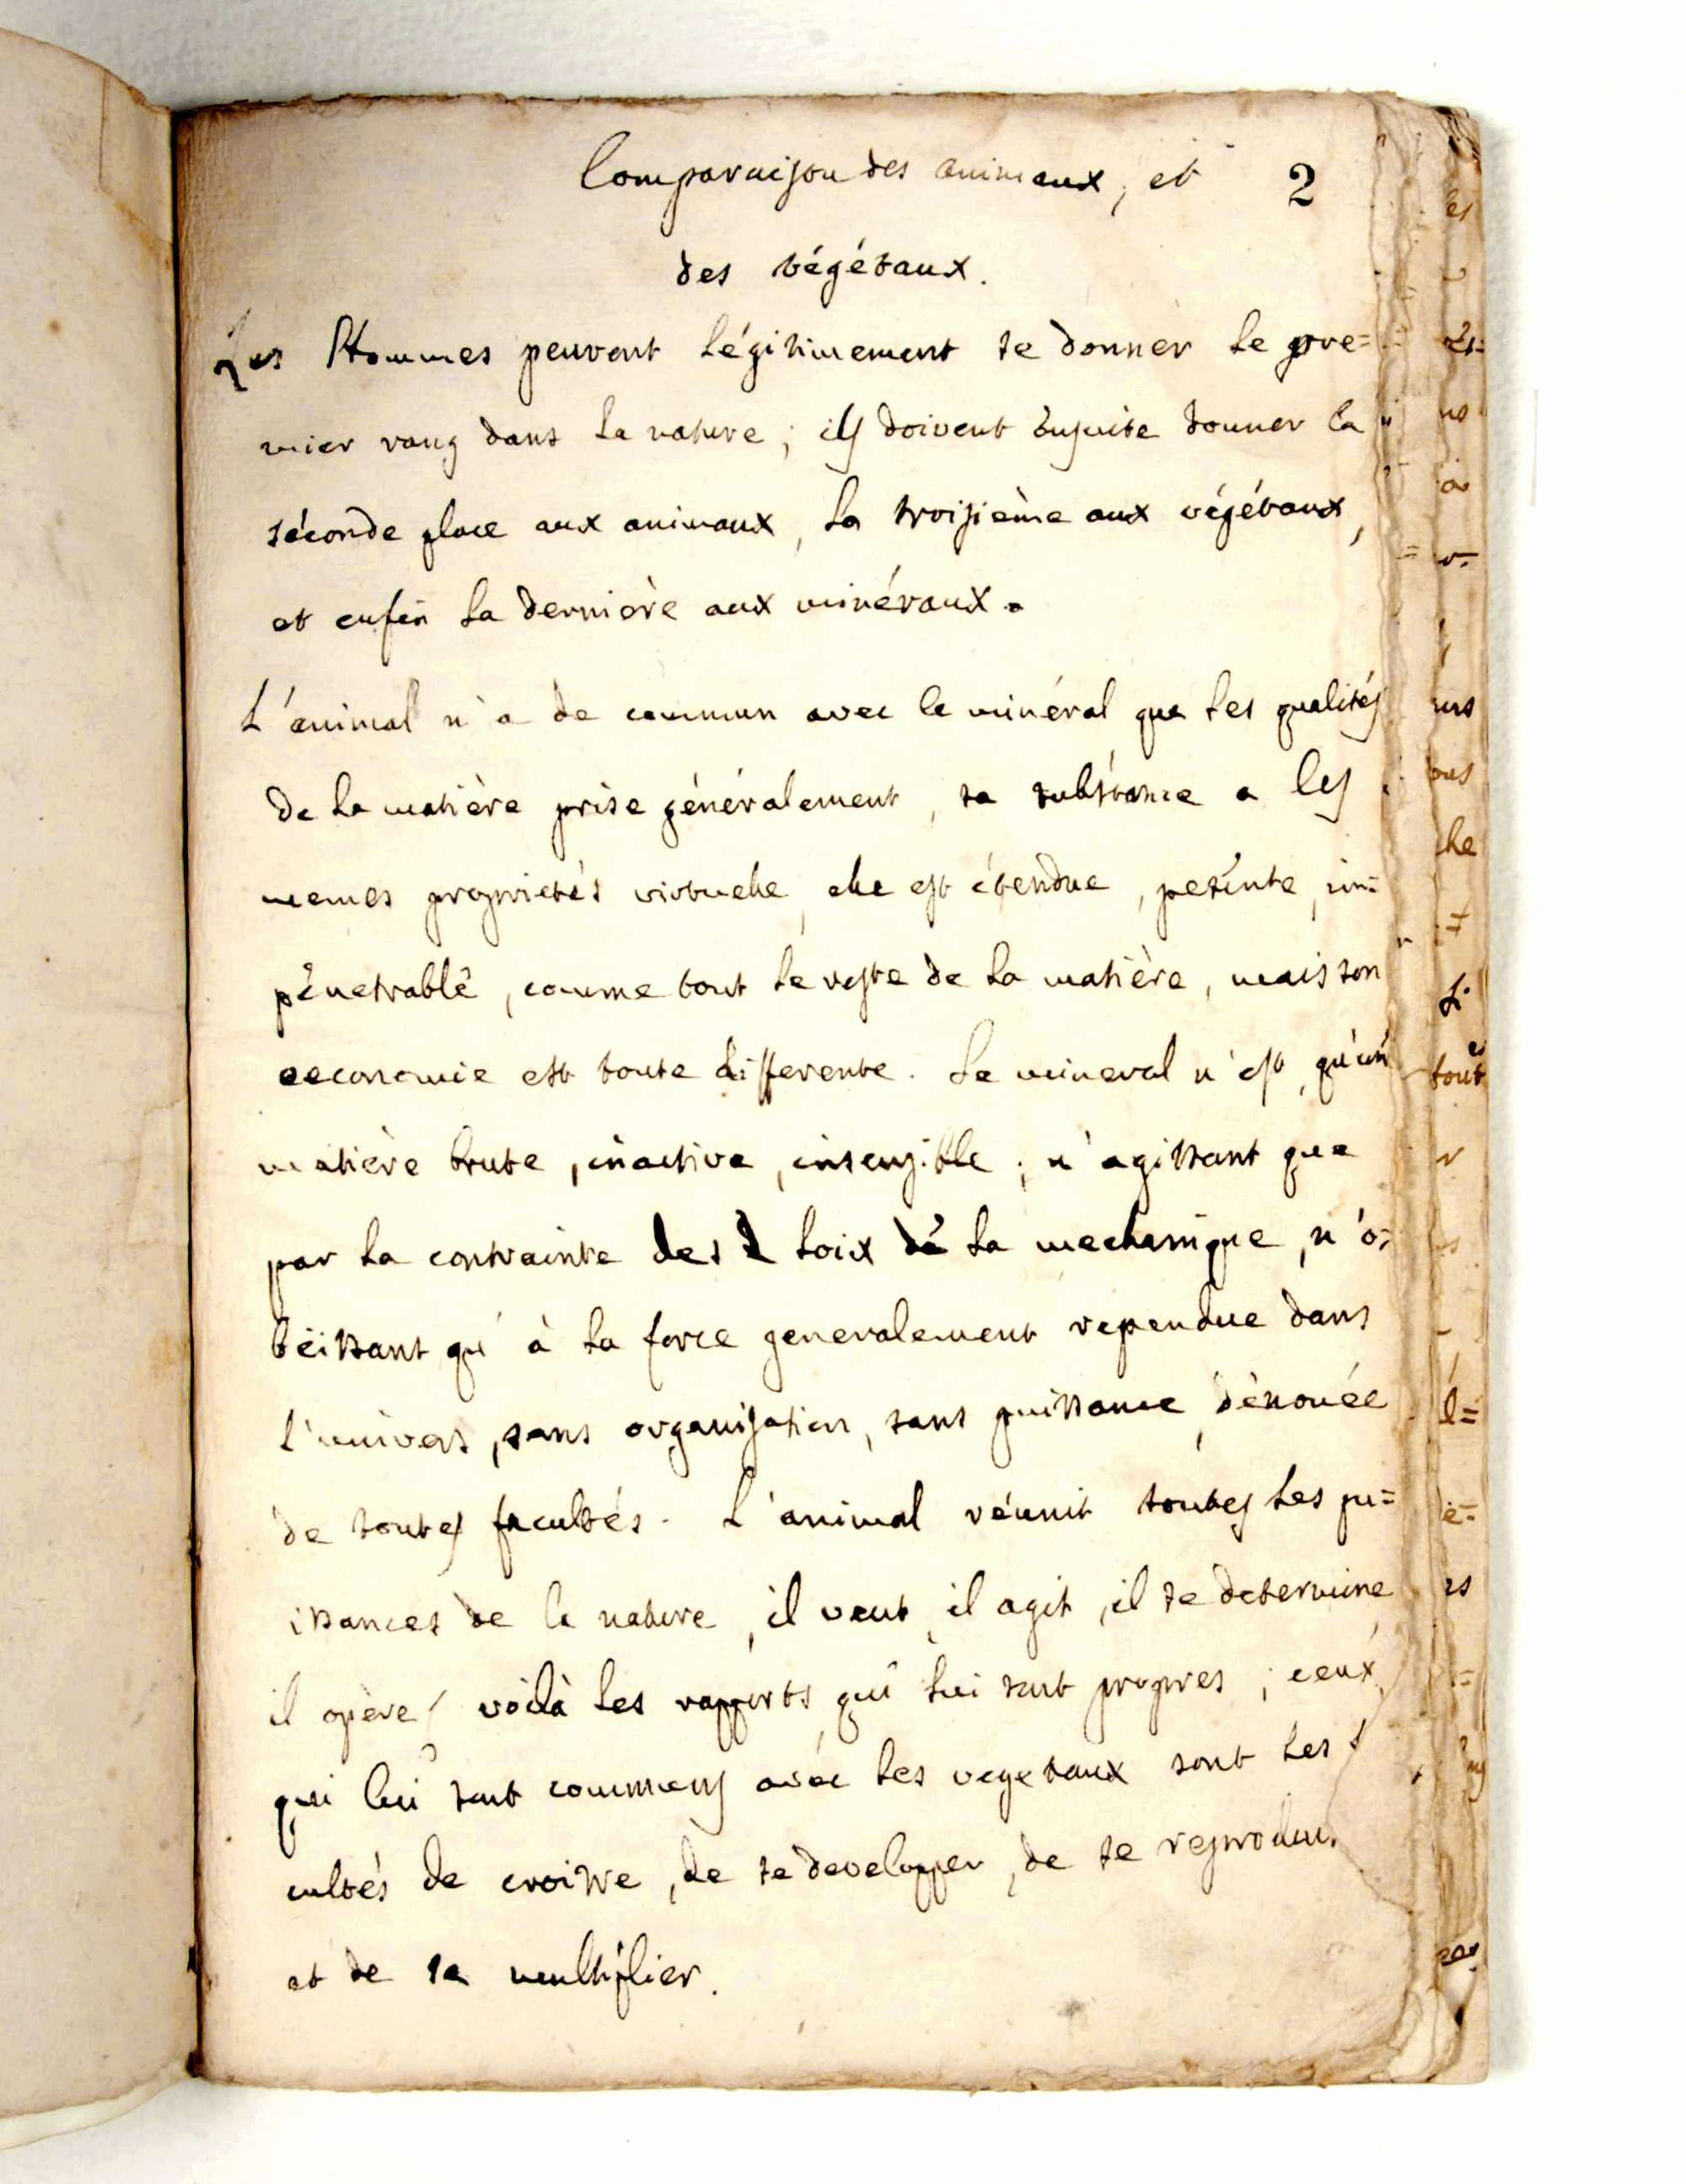 Comparaison des animaux, et 2
des végétaux.
Les Hommes peuvent légitimement se donner le pre=
mier rang dans la nature ; ils doivent ensuite donner la
séconde place aux animaux, la troisième aux végétaux,
et enfin la dernière aux minéraux.
L'animal n'a de commun avec le minéral que les qualités
de la matière prise généralement, sa substance a les
memes proprietés virtuelle, elle est étendue, pesente, im=
pénetrablé, comme tout le reste de la matière, mais son
oeconomie est toute differente. Le mineral n'est, qu'un
matière brute, inactive, insensible ; n'agissant que
par la contrainte des loix dé la mechanique, n'o=
béissant qu'à la force generalement rependue dans
l'univers, sans organisation, sans puissance, dénouée
de toutes facultés. L'animal réunit toutes les pu=
issances de la nature, il veut, il agit, il se determine
il opère / voilà les rapports, qui lui sont propres ; ceux
qui lui sont communs avec les vegetaux sont les f
cultés de croitre, de se developper, de se reprodui
et de se multiplier.